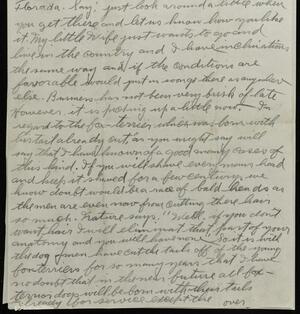 Florada. Say! just look around a little when
you get there and let us know how you like
it. My little Wife just wants to go and
live in the country and I have inclinations
the same way and if the conditions are
favorable would just as soon go there as anywhere
else. Business has not been very brisk of late
However it is picking up a little now. In
regard to the fox-terrier who was born with
first already cut as you might say will
say that I have known of a good many cases of
this kind. If you will shave even your head
and keep it shaved for a few centuries, we
know doubt would be a race of bald heads as
the men are even now from cutting their hair
so much. Nature says, "Well, if you dont
want hair I will eliminate that part of your
anatomy and you will have none. So it is with
the dog. men have cut the tails off of the young
fox terriers for so many years that I have
no doubt that in the near future all fox-
terrier dogs will be born with their tails
already for service except the
over